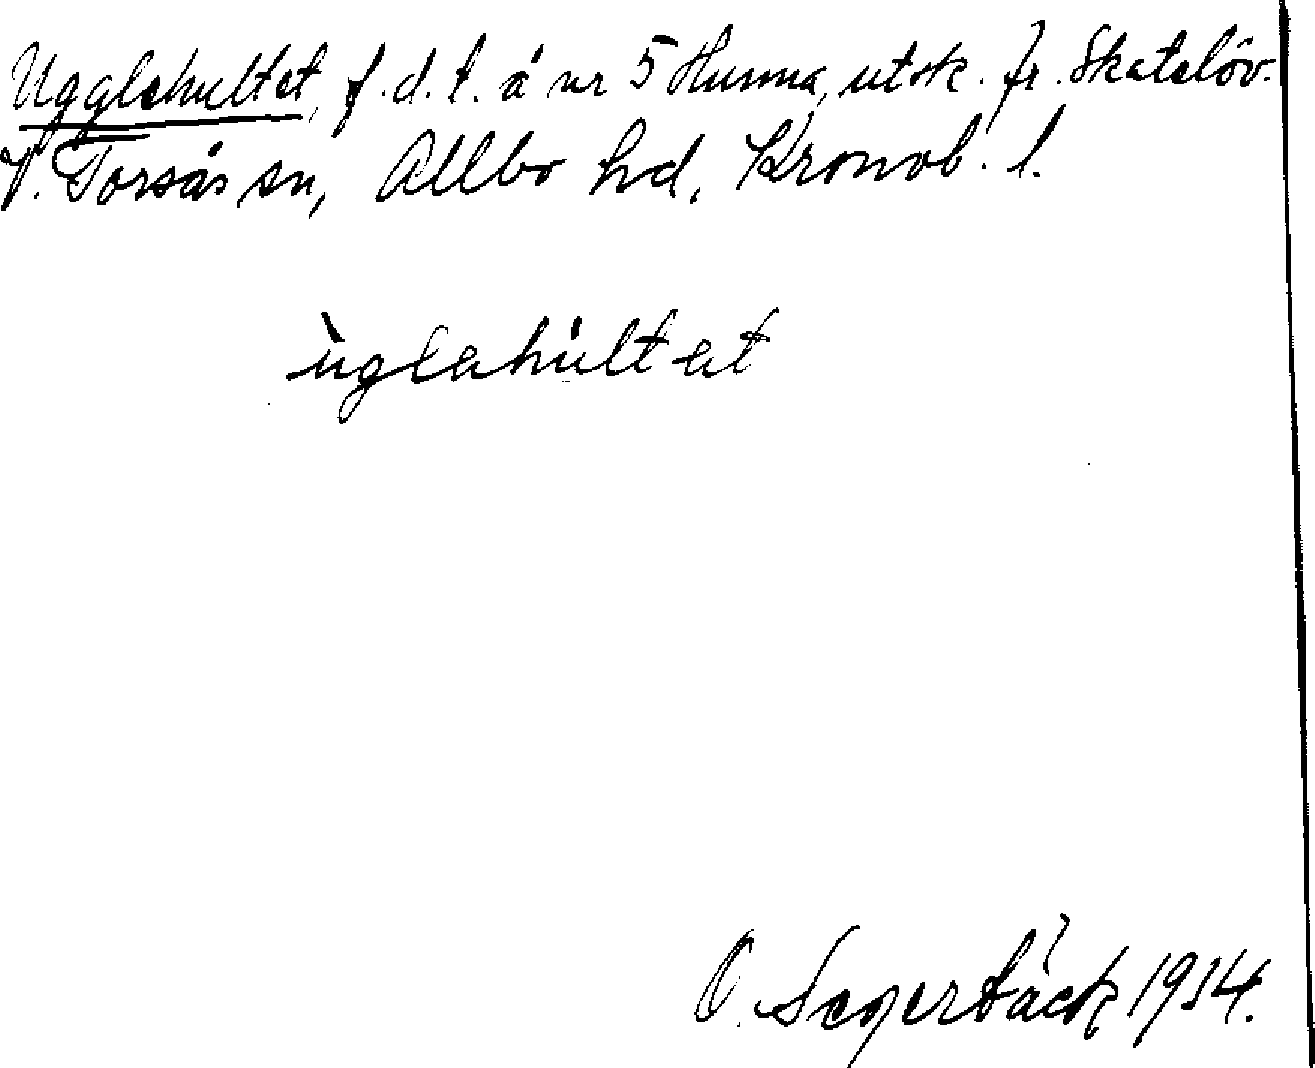 Ugglehultet, f.d.t. å nr 5 Hunna, utsk. fr. Skatelöv.
V. Torsås sn, Allbo hd, Kronob. l.
ùglahúltat
O. Segerbäck 1934.